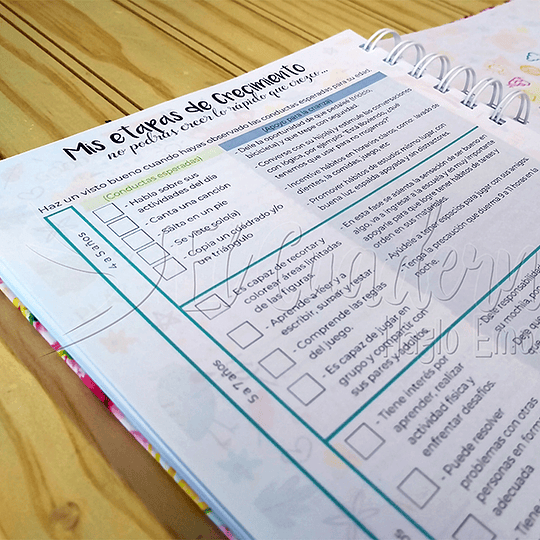 Mis etapas de Crecimiento
no podrás creer lo rápido que crezco...
Haz un visto bueno cuando hayas observado las conductas esperadas para su edad.
(Conductas esperadas)
(Apoyo para la crianza)
4 a 5 años
- Habla sobre sus
actividades del día
- Canta una canción
- Salta en un pie
- Se viste solo(a)
- Copia un cuadrado y/o
un triángulo
- Dele la oportunidad de que pedalee (triciclo,
bicicleta) y que trepe con seguridad.
- Converse con su hijo(a) y estimule las conversaciones
con lógica, por ejemplo, "Está lloviendo, ¿qué
tenemos que usar para no mojarnos?"
- Incentive hábitos en horarios claros, como: lavado de
dientes, la comida, juego, etc.
- Promover hábitos de estudio: mismo lugar con
buena luz, útiles a mano y un determinado horario.
5 a 7 años
- Es capaz de recortar y
colorear áreas limitadas
de las figuras
- Aprende a leer y a
escribir, sumar y restar.
- Comprende las reglas
del juego.
- Es capaz de jugar en
grupo y compartir con
sus pares y adultos.
- En esta fase se asienta la sensación de ser bueno en
algo, va a ingresar a la escuela y es muy importante
apoyarle para que logre tener hábitos de tareas y
orden en sus materiales.
- Ayúdele a tener espacios para jugar con los amigos.
- Tenga la precaución que duerma 9 a 11 horas en la
noche.
- Tiene interés por
aprender, realizar
actividad física y
enfrentar desafíos.
- Puede resolver
problemas con otras
personas en forma
adecuada
- Dele responsabilidad
su mochila,
Dele
que
Cuaderno
Hazlo